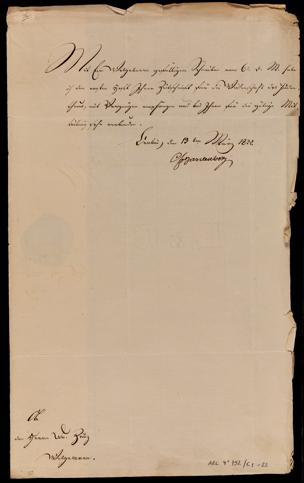 Mit Ew Wohlgeboren gefälligem Schreiben vom 6. d. M. habe
ich den ersten Theil Ihrer Zeitschrift für die Wissenschaft des Juden-
thums, mit Vergnügen empfangen und bin Ihnen für die gütige Mit-
theilung sehr verbunden.
Berlin, den 13 ten März 1822
CFHardenberg
An
den Herrn Dr. Zunz
Wohlgeboren.
ARC 4° 792 / C 1 - 22